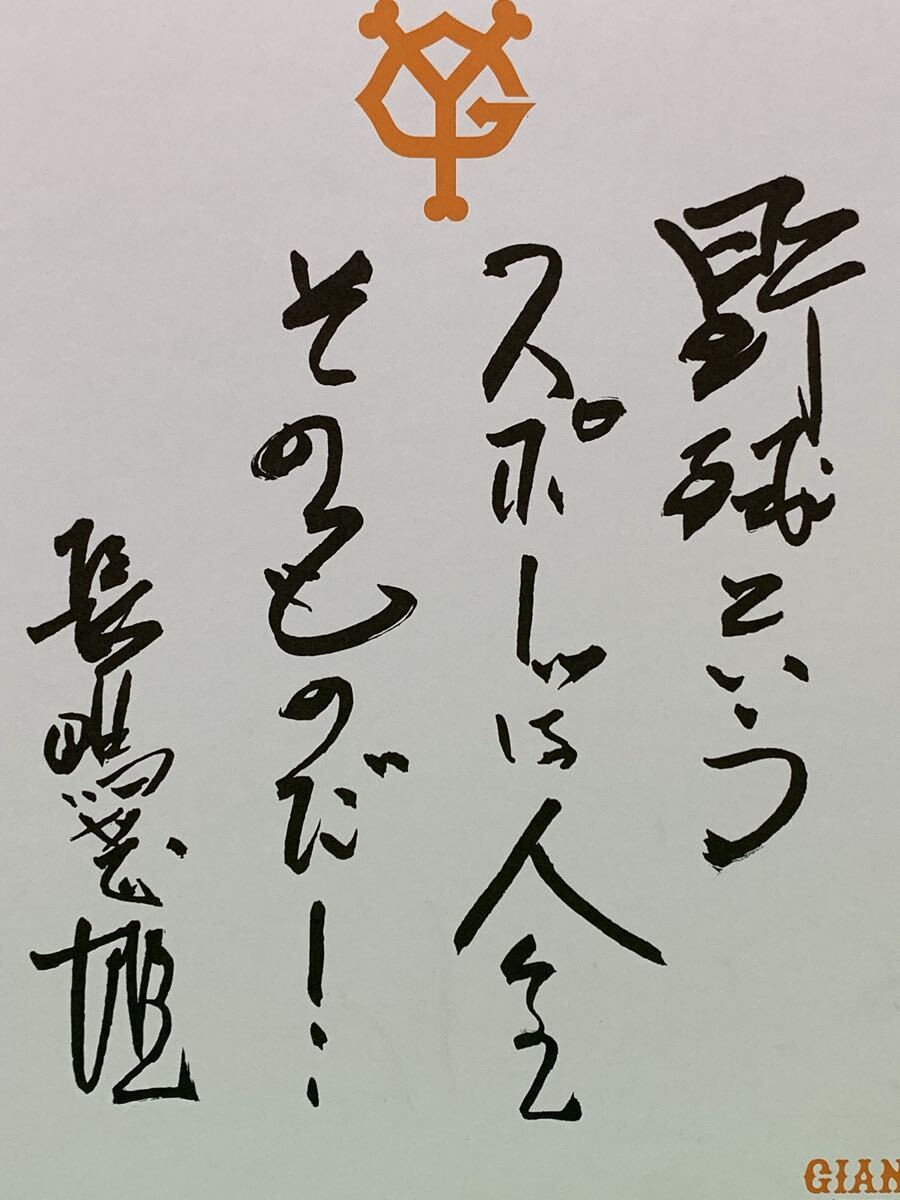 YG
野球という
スポーツは人生
そのものだ！
長嶋茂雄
GIAN